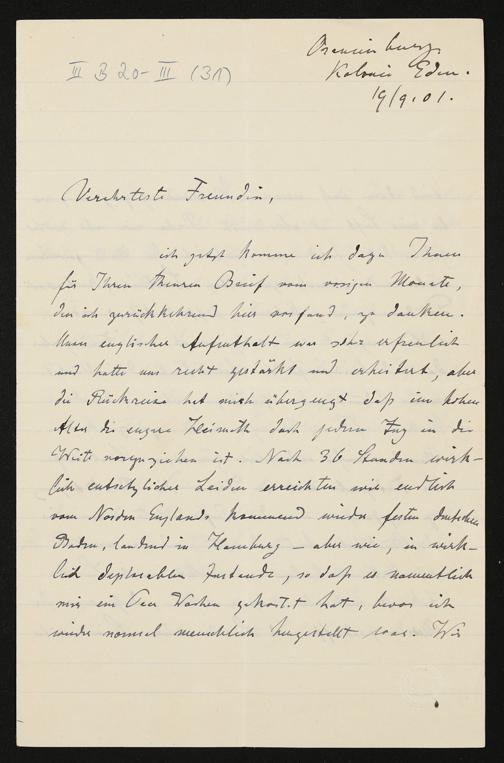 III B 20-III (31)
Oranienburg,
Kolonie Eden.
19/9.01.
Verehrteste Freundin,
jetzt komme ich dazu Ihnen
für Ihren theuren Brief vom vorigen Monate,
den ich zurückkehrend hier vorfand, zu danken.
Unser englischer Aufenthalt war sehr erfreulich
und hatte uns recht gestärkt und erheitert, aber
die Rückreise hat mich überzeugt daß im hohen
Alter die engere Heimath doch jedem Zug in die
Weite vorzuziehen ist. Nach 36 Stunden wirk-
lich entsetzlicher Leiden erreichten wir endlich
vom Norden Englands kommend wieder festen deutschen
Boden, landend in Hamburg – aber wie, in wirk-
lich deplorablem Zustande, so daß es namentlich
mir ein Paar Wochen gekostet hat, bevor ich
wieder normal menschlich hergestellt war. Wir